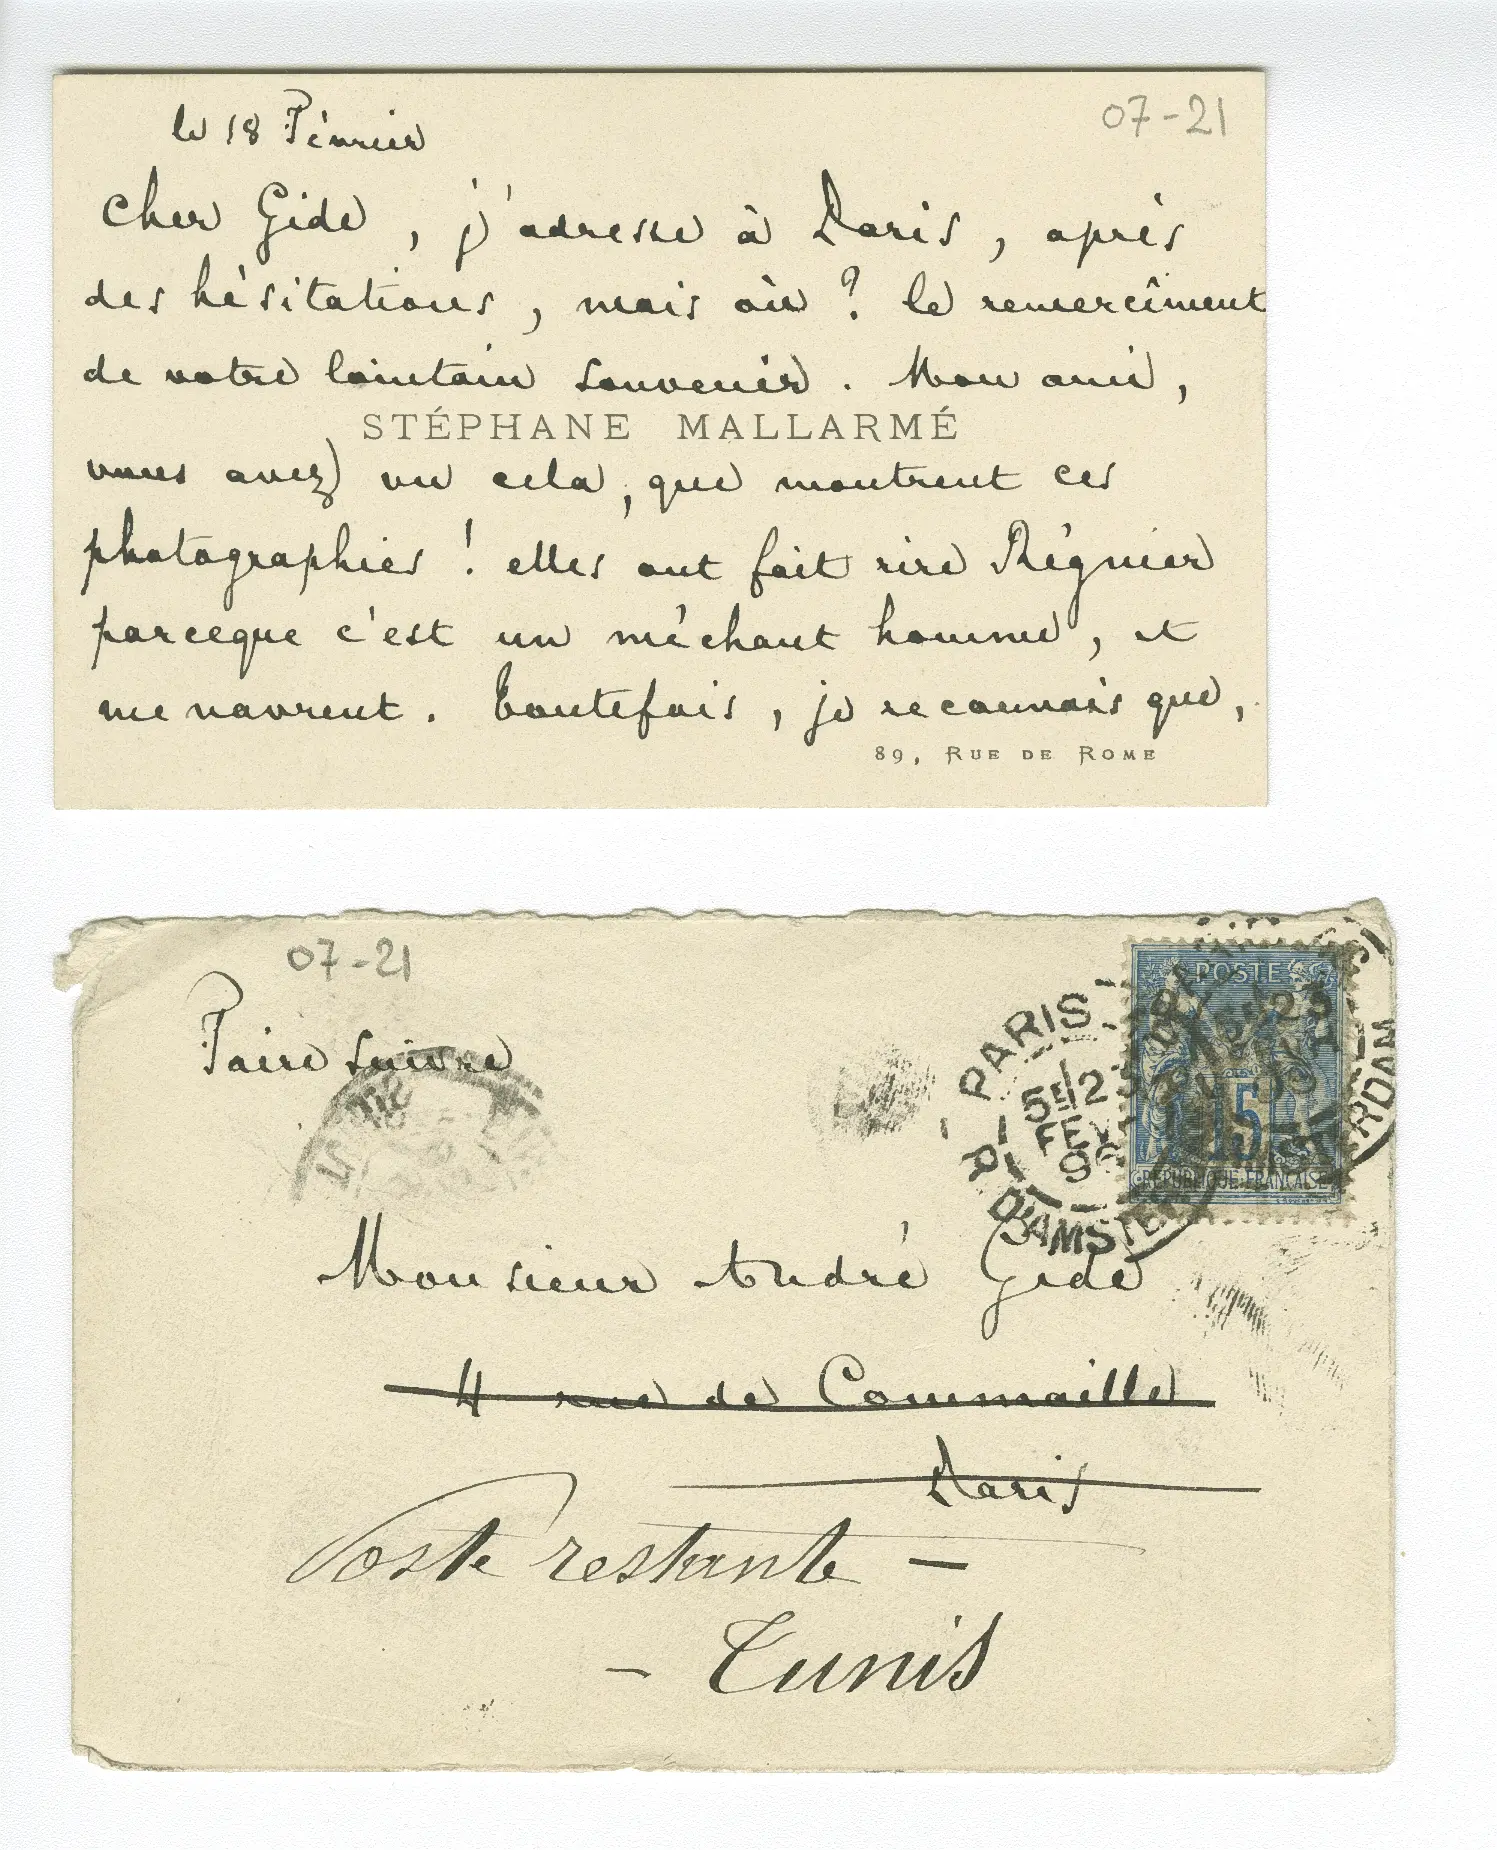 le 18 Février
07-21
Cher Gide, j'adresse à Paris, après
des hésitations, mais où? le remercîment
de votre lointain souvenir. Mon ami,
STÉPHANE MALLARMÉ
vous avez vu cela, que montrent ces
photographies! elles ont fait rire Régnier
parceque c'est un méchant homme, et
me navrent. Toutefois, je reconnais que,
89, RUE DE ROME
07-21
Faire suivre
PARIS
5E/23
FEVR
96
R. D'AMSTERDAM
POSTE
15
REPUBLIQUE FRANÇAISE
Monsieur André Gide
4 rue de Commaille
Paris
Poste restante -
- Tunis